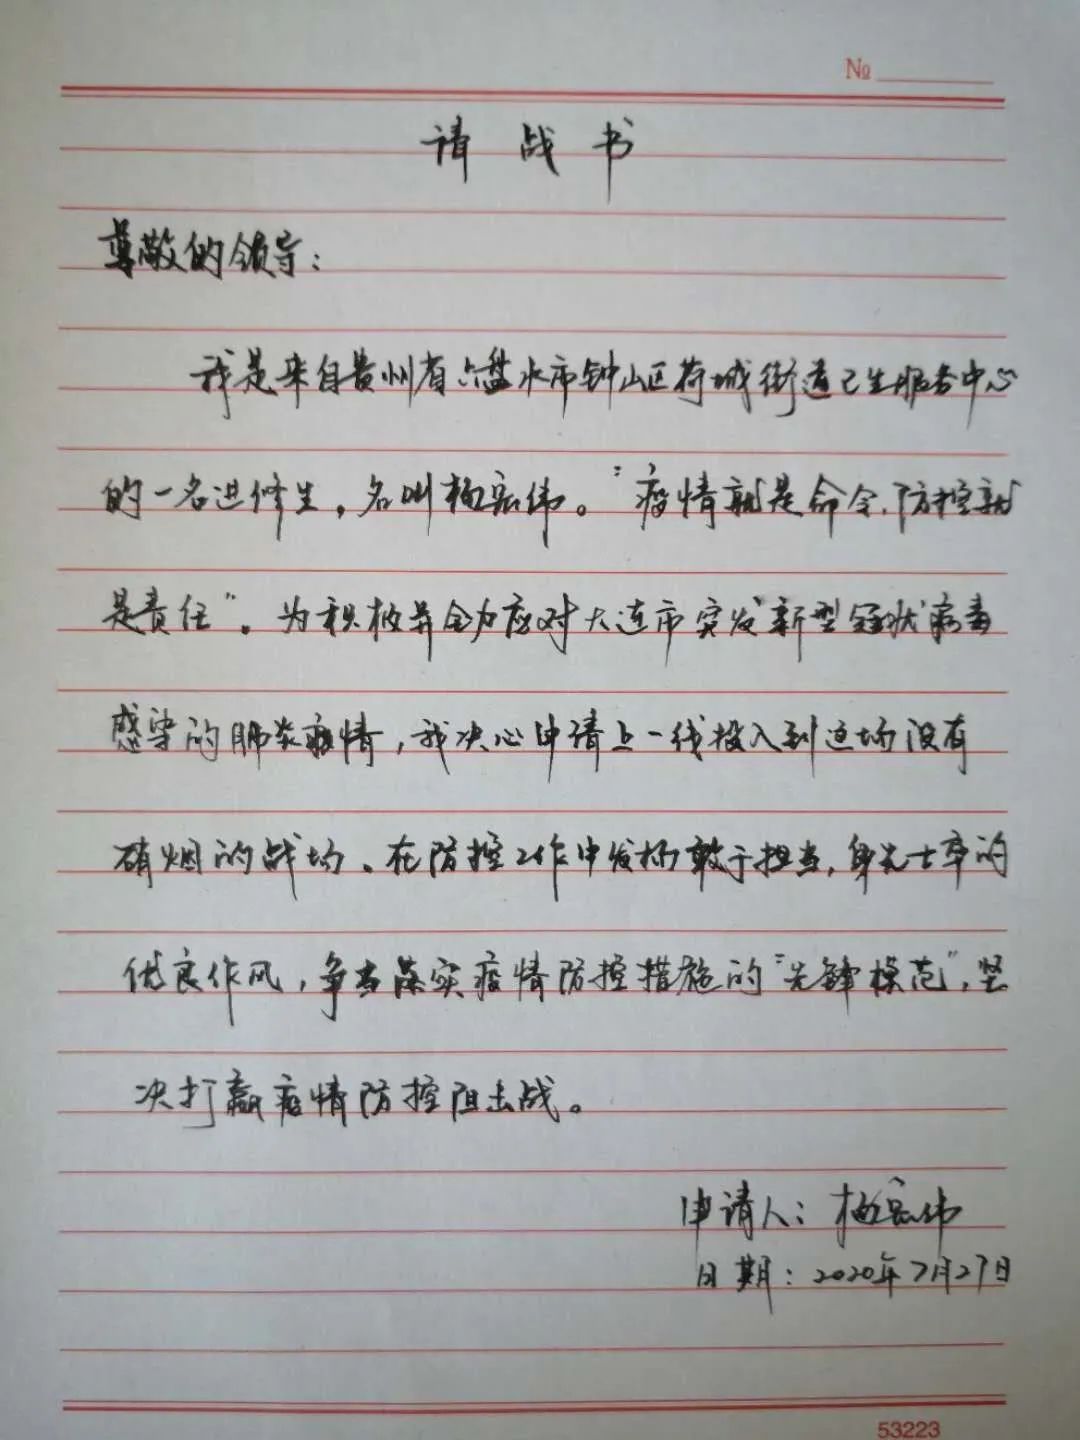 №
请战书
尊敬的领导：
我是来自贵州省六盘水市钟山区荷城街道卫生服务中心
的一名进修生，名叫杨宏伟。“疫情就是命令，防控就
是责任”。为积极并全力应对大连市突发新型冠状病毒
感染的肺炎疫情，我决心申请上一线投入到这场没有
硝烟的战场。在防控工作中发扬敢于担当，身先士卒的
优良作风，争当落实疫情防控措施的“先锋模范”，坚
决打赢疫情防控阻击战。
申请人：杨宏伟
日期：2020年7月27日
53223